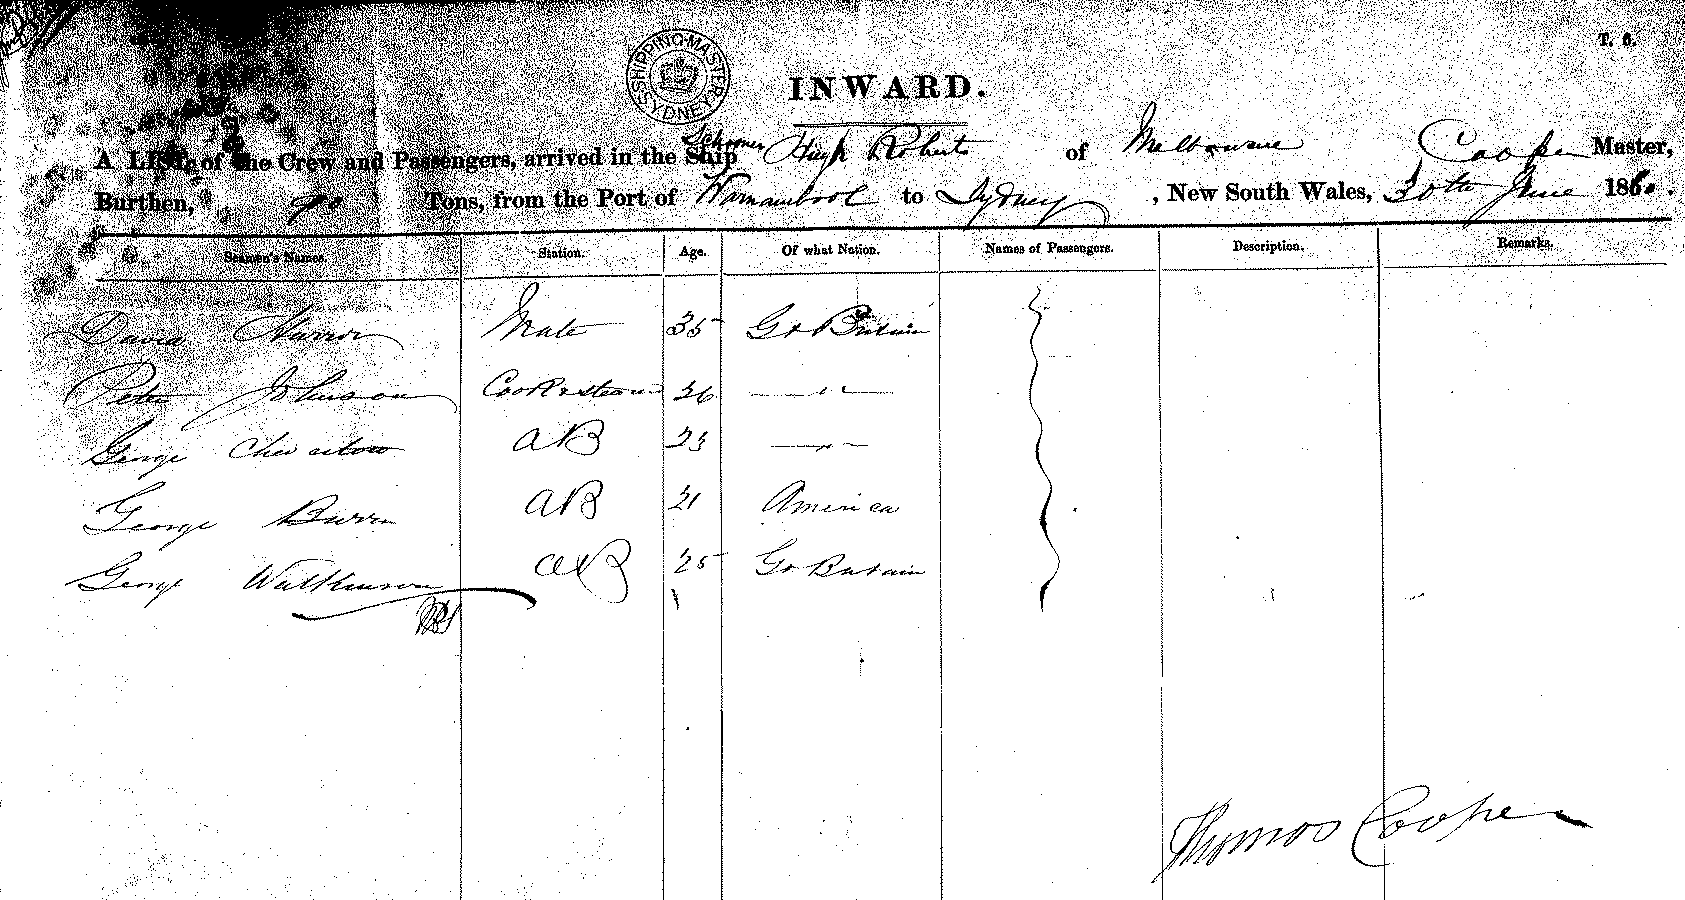 T. 6.
SHIPPING MASTER SYDNEY
INWARD.
A LIST of the Crew and Passengers, arrived in the Ship Schooner Hugh Roberts of Melbourne Cooper Master,
Burthen, 90 Tons, from the Port of Warnambool to Sydney, New South Wales, 30th June 1860.
Seamen's Names. Station. Age. Of what Nation. Names of Passengers. Description. Remarks.
David Mate 35 Gt Britain
Peter Johnson Cook & Steward 26 — " —
George AB 23 — " —
George AB 21 America
George AB 25 Gt Britain
Thomas Cooper